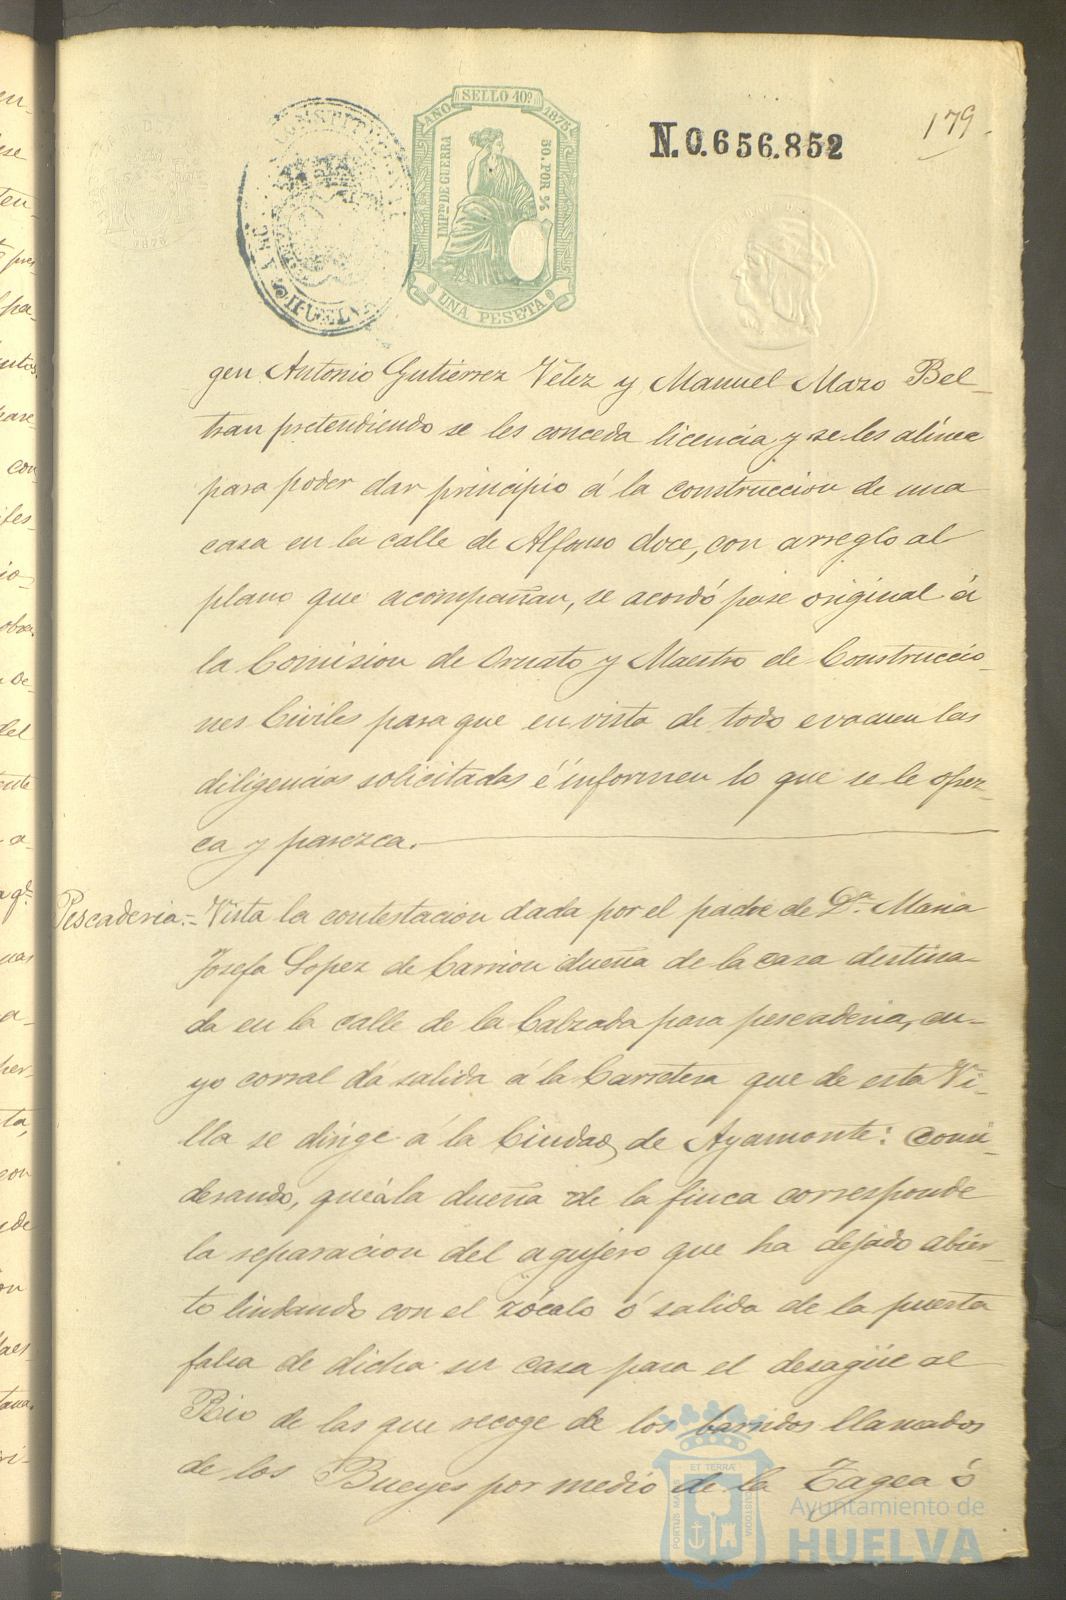 AÑO SELLO 10º 1875
IMPTO DE GUERRA
50. POR %
UNA PESETA
HUELVA
N.0.656.852
179
gen Antonio Gutierrez Velez y Manuel Mazo Bel-
tran pretendiendo se les conceda licencia y se les alinee
para poder dar principio á la construccion de una
casa en la calle de Alfonso doce, con arreglo al
plano que acompañan, se acordó pase original á
la Comision de Ornato y Maestro de Construccio-
nes Civiles para que en vista de todo evacuen las
diligencias solicitadas é informen lo que se le ofrez-
ca y parezca.
Pescaderia.= Vista la contestacion dada por el padre de Dª. Maria
Josefa Lopez de Carrion dueña de la casa destina-
da en la calle de la Calzada para pescaderia, cu-
yo corral dá salida á la Carretera que de esta Vi-
lla se dirige á la Ciudad de Ayamonte: Consi-
derando, que á la dueña de la finca corresponde
la reparacion del agujero que ha dejado abier-
to lindando con el zócalo ó salida de la puerta
falsa de dicha su casa para el desagüe al
Rio de las que recoge de los barridos llamados
de los Bueyes por medio de la Zagea ó
PORTUS MARIS ET TERRÆ CUSTODIA
Ayuntamiento de
HUELVA